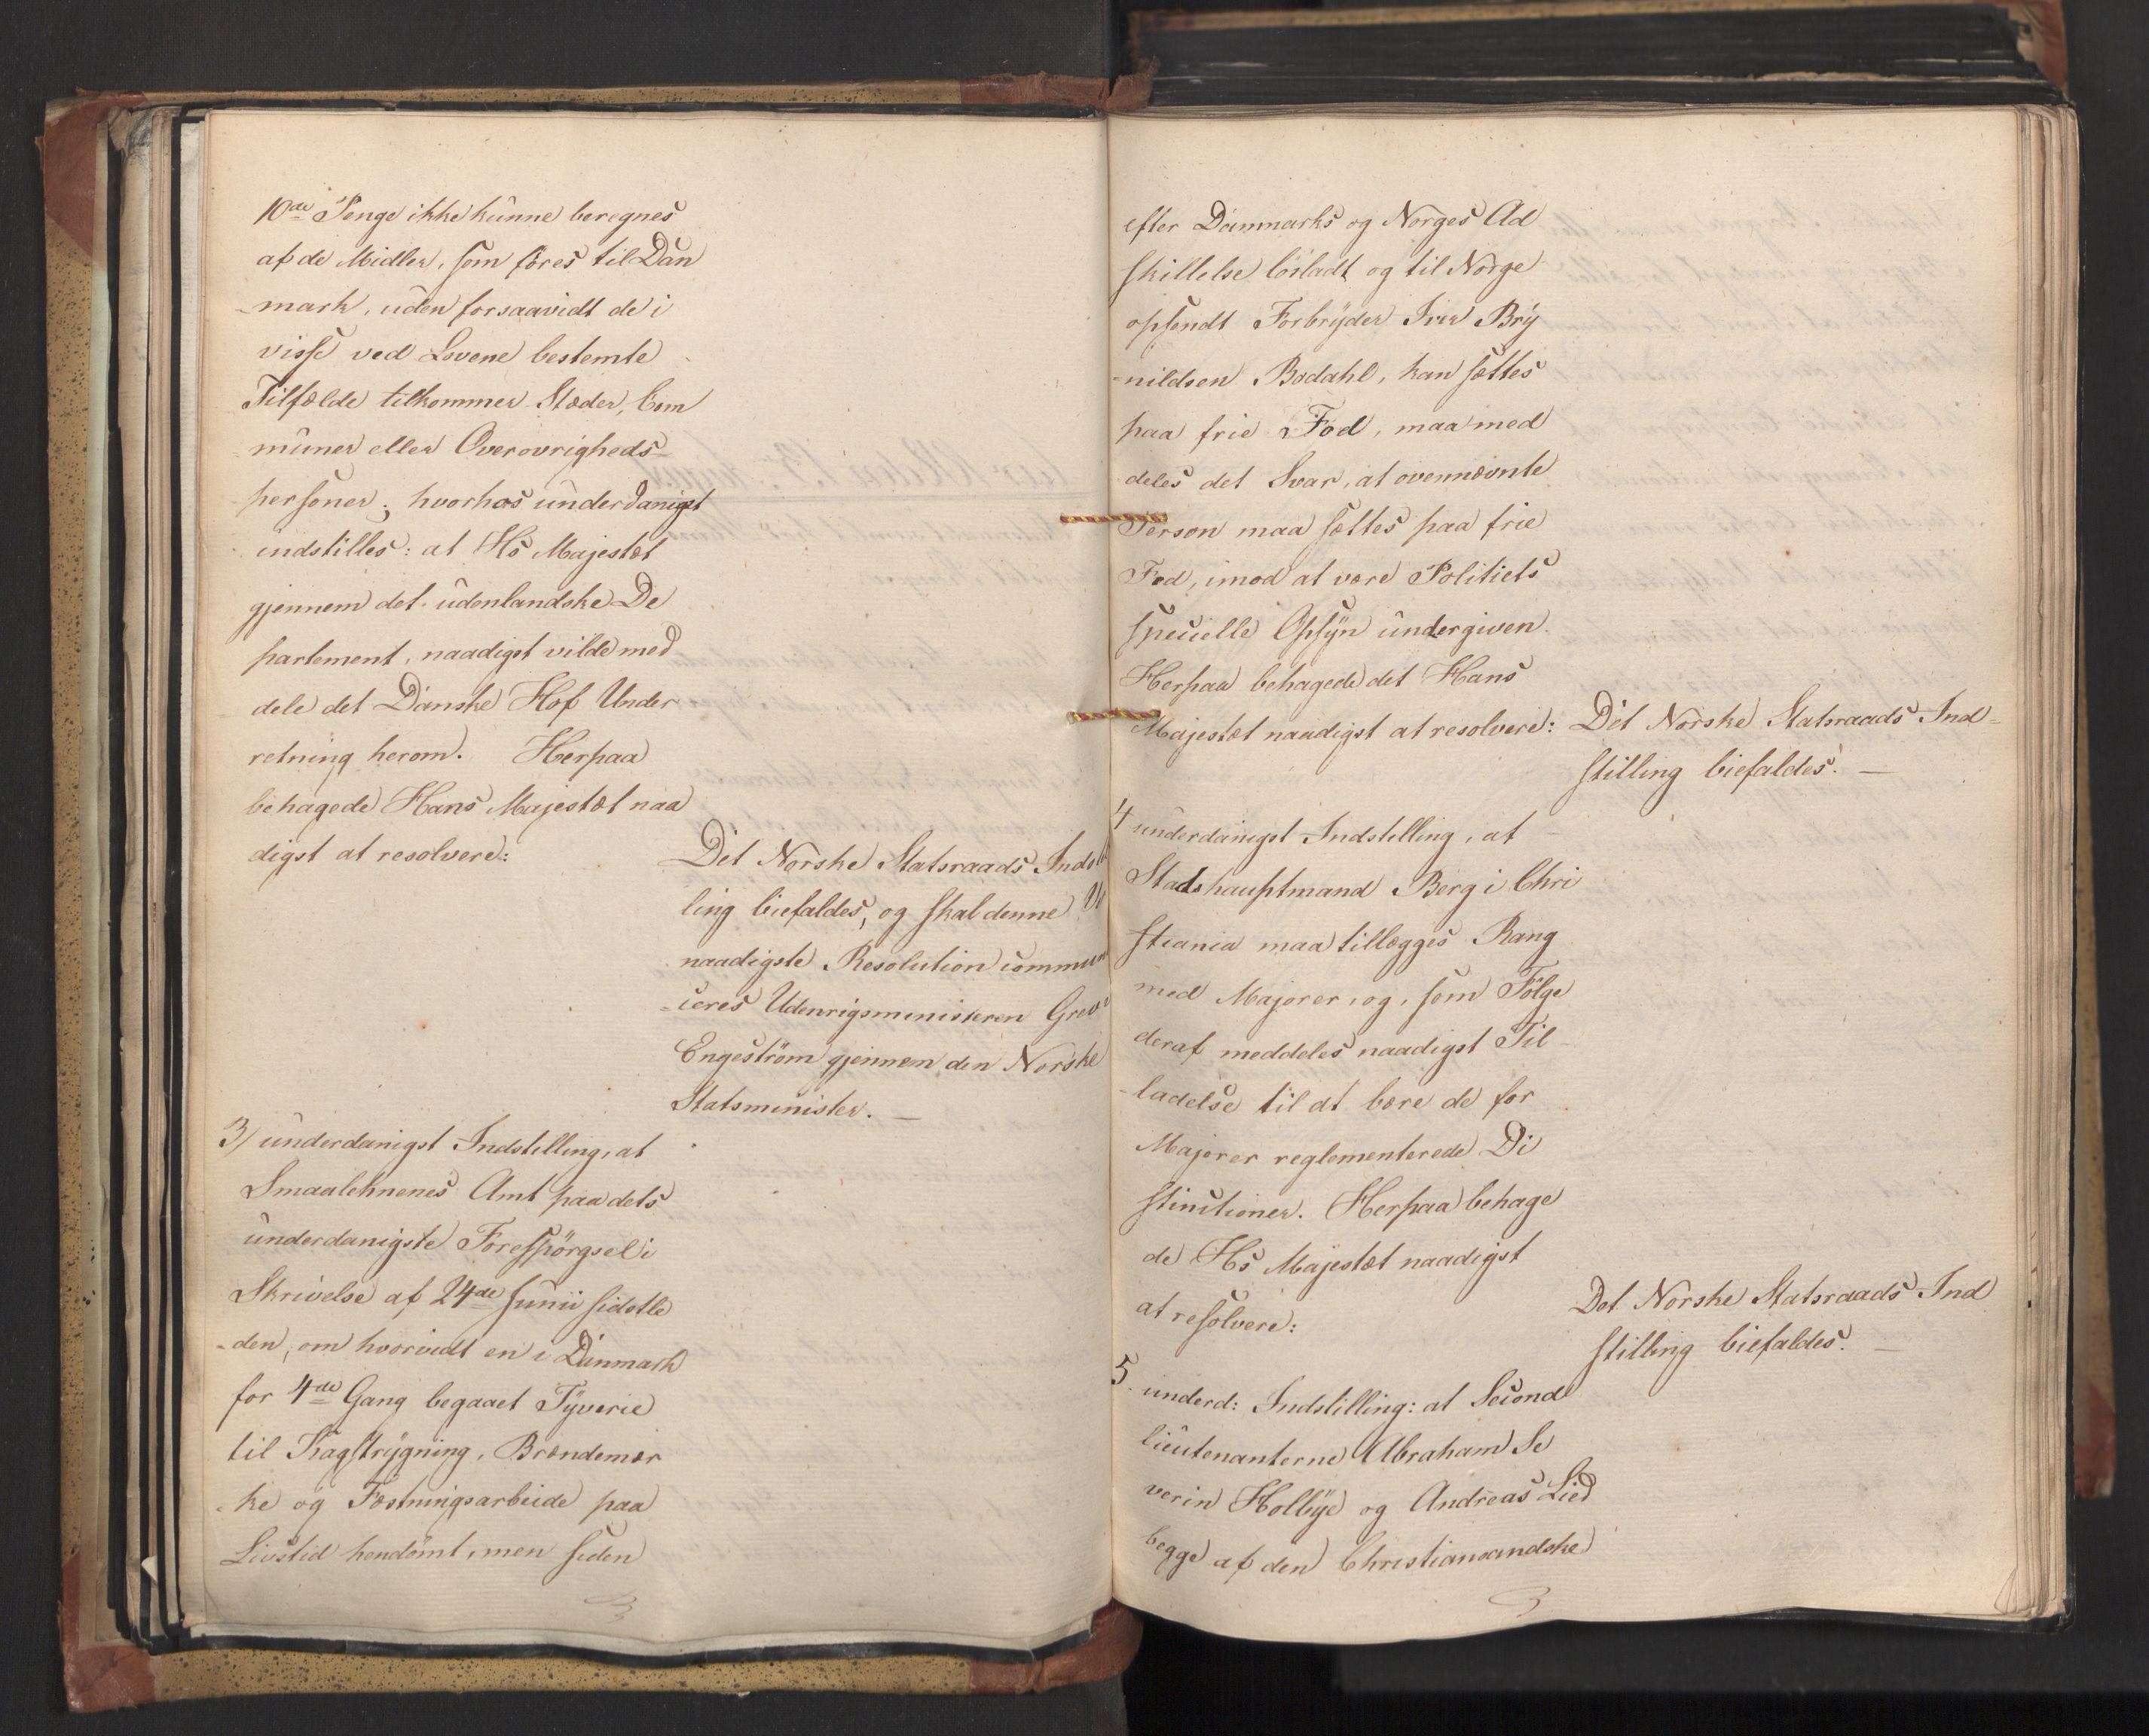 10de Penge ikke kunne beregnes
af de Midler, som föres til Dan
-mark, uden forsaavidt de i
visse ved Lovene bestemte
Tilfælde tilkommer Stæder, Com
muner eller Overøvrigheds-
personer; hvorhos underdanigst
indstilles: at Hs Majestæt
gjennem det udenlandske De
partement, naadigst vilde med
dele det Danske Hof Under
retning herom. Herpaa
behagede Hans Majestæt naa
digst at resolvere:
Det Norske Statsraads Indstil
ling biefaldes, og skal denne
naadigste Resolution commun
-iceres Udenrigsministeren Greve
Engeström gjennem den Norske
Statsminister. —
3/ underdanigst Indstilling, at
Smaalehnenes Amt paa dets
underdanigste Forespörgsel i
Skrivelse af 24de Junii sidstle
-den, om hvorvidt en i Danmark
for 4de Gang begaaet Tyverie
til Kagstrygning, Brændemær
-ke og Fæstningsarbeide paa
Livstid hendömt, men siden
efter Danmarks og Norges Ad
skillelse lösladt og til Norge
opsendt Forbryder Iver Bry
-nildsen Bødahl, kan sættes
paa frie Fod, maa med
deles det Svar, at ovennævnte
Person maa sættes paa frie
Fod, imod at være Politiets
specielle Opsyn undergiven.
Herpaa behagede det Hans
Majestæt naadigst at resolvere:
Det Norske Statsraads Ind-
stilling biefaldes. —
4 underdanigst Indstilling, at
Stadshauptmand Berg i Chri
stiania maa tillægges Rang
med Majorer, og, som Fölge
deraf meddeles naadigst Til
-ladelse til at bære de for
Majorer reglementerede Di
stinctioner. Herpaa behage
de Hs Majestæt naadigst
at resolvere:
Det Norske Statsraads Ind
stilling biefaldes. —
5. underd: Indstilling: at Second
lieutenanterne Abraham Se
verin Holbye og Andreas Lied
begge af den Christiansandske